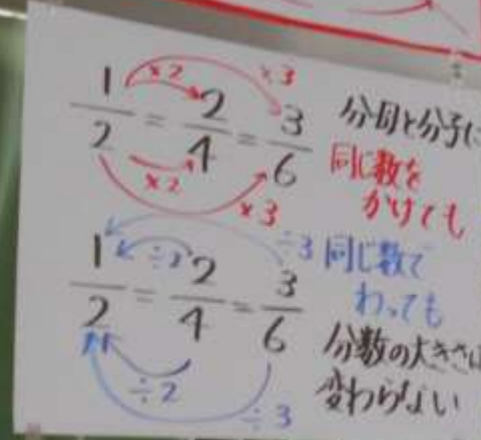 ×2 ×3
1/2 = 2/4 = 3/6
×2 ×3
分母と分子に
同じ数を
かけても
÷2 ÷3
1/2 = 2/4 = 3/6
÷2 ÷3
同じ数で
わっても
分数の大きさは
変わらない